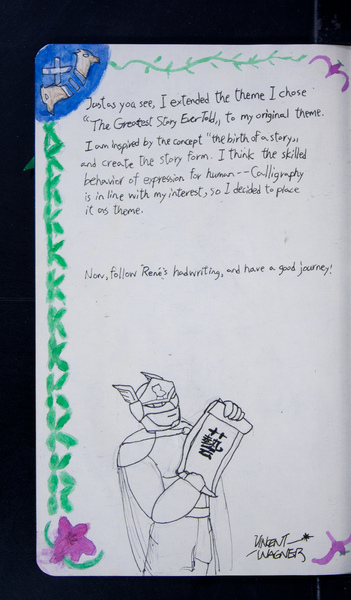 Just as you see, I extended the theme I chose
"The Greatest Story Ever Told", to my original theme.
I am inspired by the concept "the birth of a story",
and create the story form. I think the skilled
behavior of expression for human--Calligraphy
is in line with my interest, so I decided to place
it as theme.
Now, follow René's hadwriting, and have a good journey!
藝
VINCENT
WAGNER